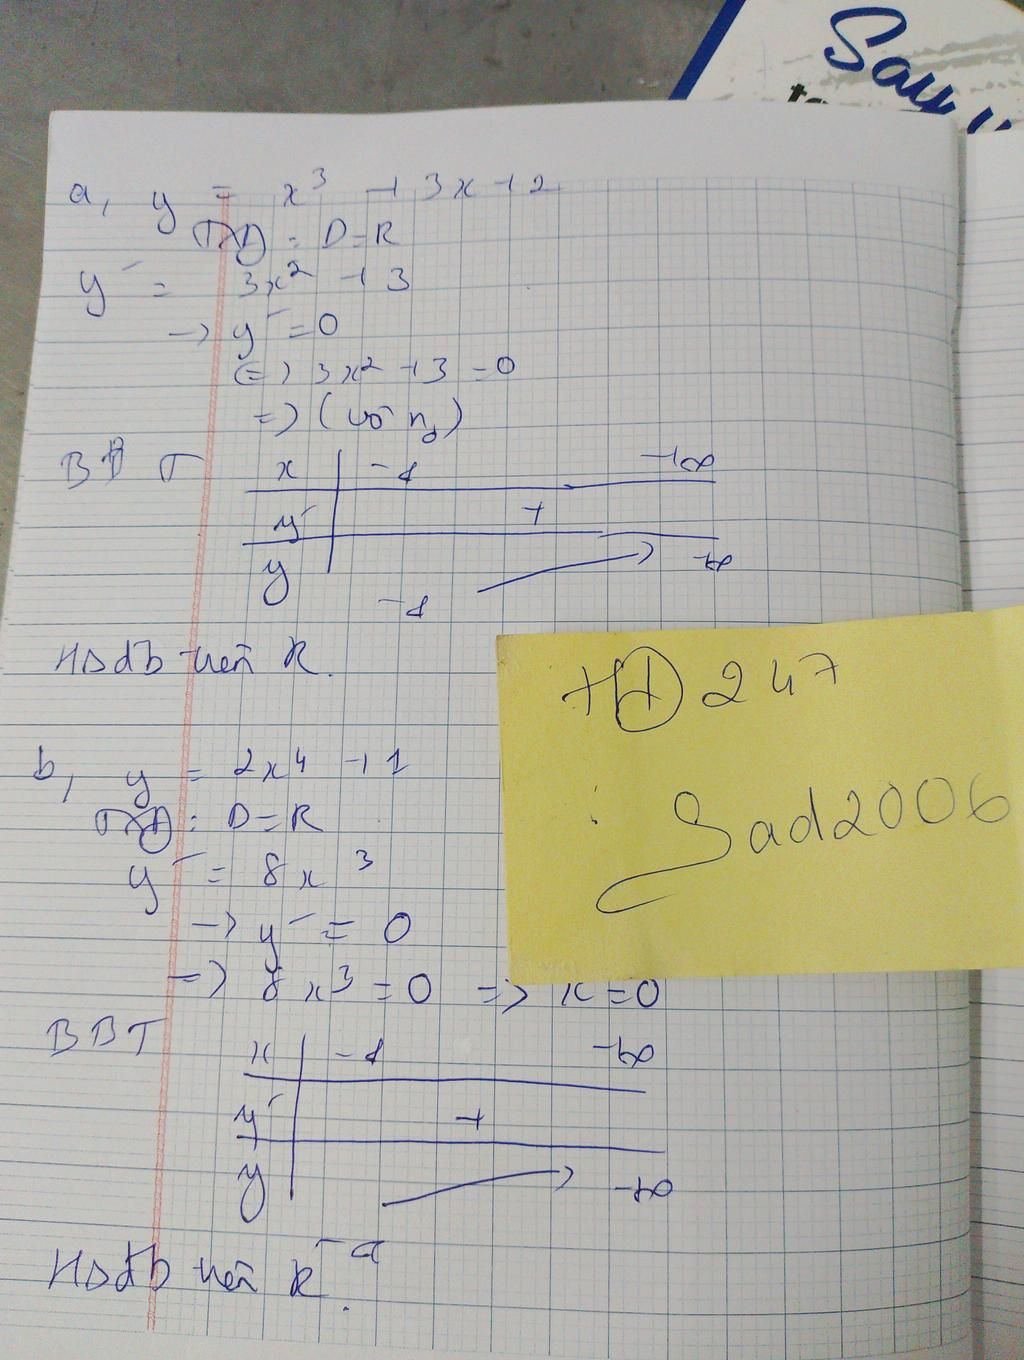 Say
a, y = x³ + 3x + 2
TXĐ : D = R
y' = 3x² + 3
→ y' = 0
(=) 3x² + 3 = 0
=> (vô n₀)
BBT
x -∞ +∞
y' +
y -∞ +∞
HSđb trên R.
b, y = 2x⁴ + 1
TXĐ : D = R
y' = 8x³
→ y' = 0
=> 8x³ = 0 => x = 0
BBT
x -∞ +∞
y' +
y -∞ +∞
HSđb trên R.
HĐ 247
: Sad2006